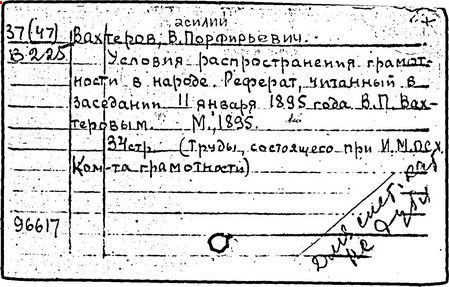 асилий
37(47) Вахтеров, В. Порфирьевич.
В 225 Условия распространения грамот-
ности в народе. Реферат, читанный в
заседании 11 января 1895 года В.П. Вах-
теровым. М., 1895.
34 стр. (Труды, состоящего при И.М.О.С.Х.
Ком-та грамотности)
96617